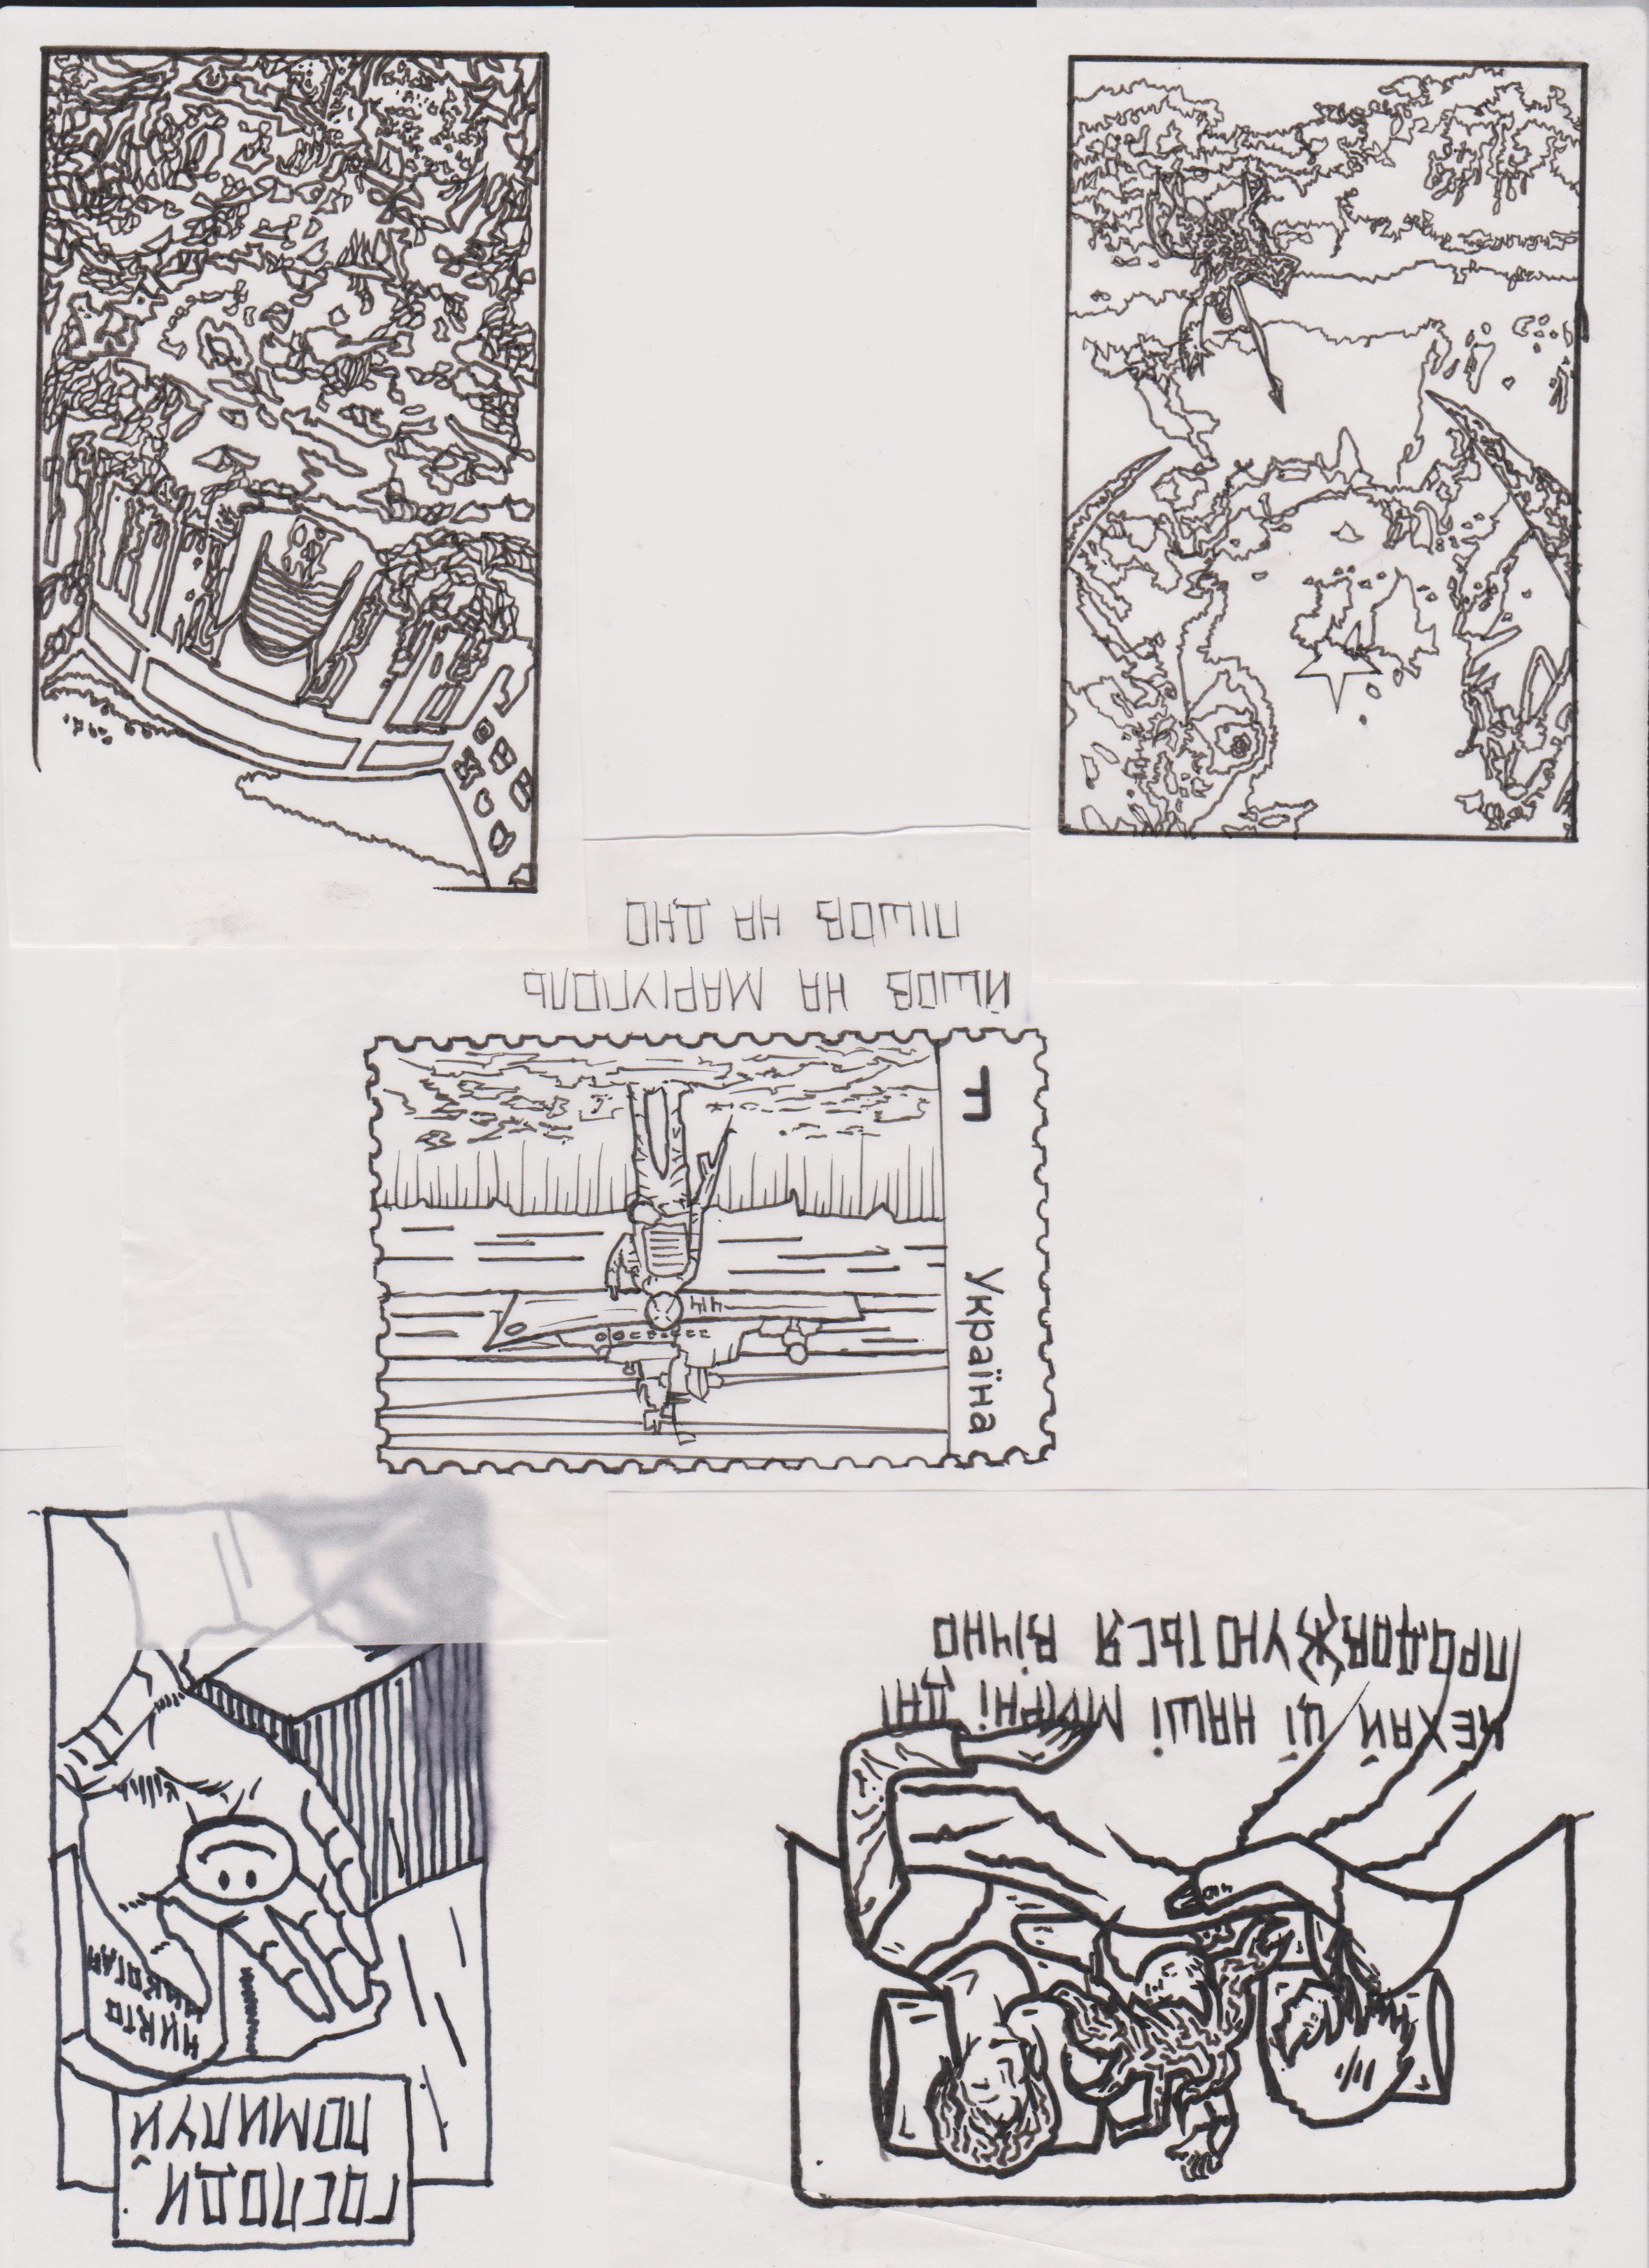 НЕХАЙ ЦІ НАШІ МИРНІ ДНІ
ПРОДОВЖУЮТЬСЯ ВІЧНО
ГОСПОДИ
ПОМИЛУЙ
НИКТО
НИКОГДА
Україна
F
414
ЙШОВ НА МАРІУПОЛЬ
ПІШОВ НА ДНО